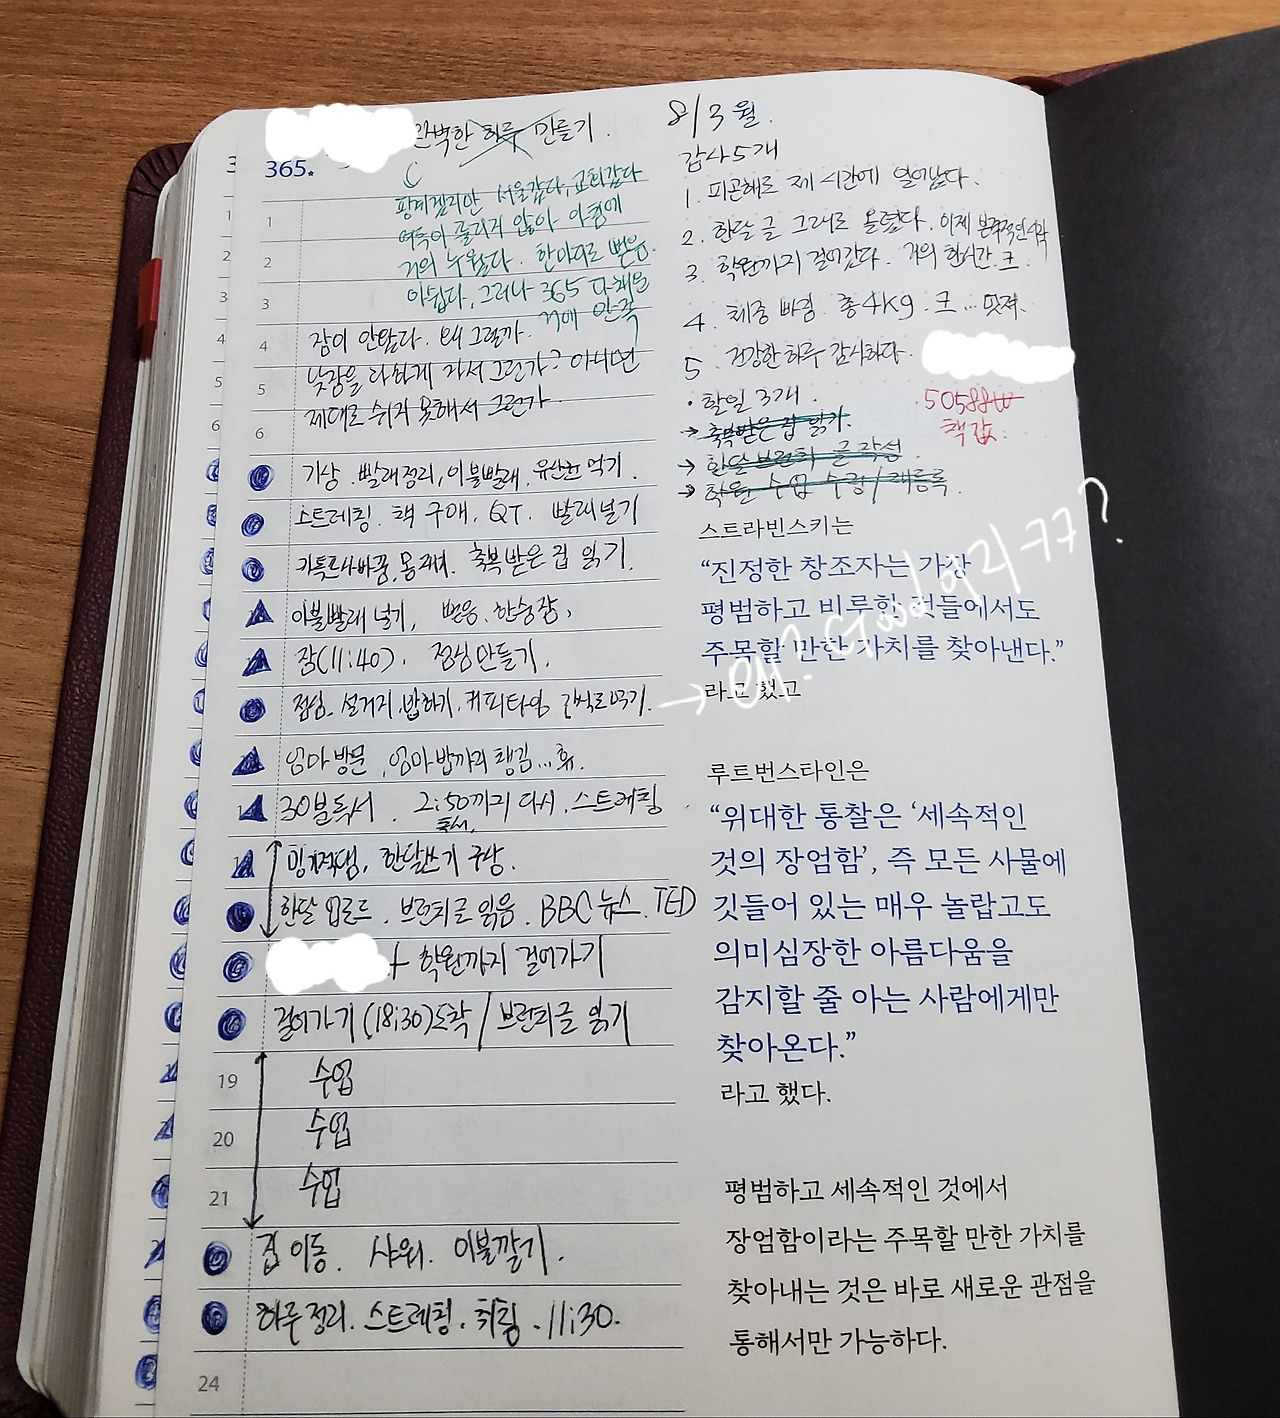 완벽한 하루 만들기.
365.
핑계겠지만 서울갔다, 교회갔다
여독이 풀리지 않아 아침에
거의 누웠다. 한마디로 뻗음.
아쉽다, 그러나 365 다채운
거에 만족
1
2
3
4 잠이 안왔다. 왜 그럴까.
5 낮잠을 과하게 자서 그런가? 아니면
6 제대로 쉬지 못해서 그런가.
기상. 빨래정리, 이불빨래. 유산균 먹기.
스트레칭. 책 구매. QT. 빨래널기
카톡프사바꿈, 축복받은 집 읽기.
이불빨래 널기, 뻗음. 한숨잠,
잠(11:40). 점심만들기.
점심. 설거지, 밥하기, 커피타임 간식로먹기.
→ 왜? Good이지 ㅋㅋ?
엄마방문, 엄마밥까지 챙김... 휴.
30분독서 2:50까지 다시. 스트레칭
독서.
한달쓰기 구상.
한달 업로드. 브런치글 읽음. BBC 뉴스. TED
학원까지 걸어가기
걸어가기 (18:30)도착 / 브런치글 읽기
19 수업
20 수업
21 수업
집 이동. 샤워. 이불깔기.
하루정리. 스트레칭. 취침. 11:30.
24
8/3 월.
감사5개
1. 피곤해도 제 시간에 일어났다.
2. 한달 글 그대로 올렸다. 이제 본격적인 시작
3. 학원까지 걸어갔다. 거의 한시간. 크.
4. 체중 빠짐. 총 4kg. 크... 멋져.
5. 건강한 하루 감사하다.
· 할일 3개.
→ 축복받은 집 읽기.
→ 한달 브런치 글 작성.
→ 학원 수업 수강/재등록.
50588₩
책값.
스트라빈스키는
“진정한 창조자는 가장
평범하고 비루한 것들에서도
주목할 만한 가치를 찾아낸다.”
라고 했고
루트번스타인은
“위대한 통찰은 ‘세속적인
것의 장엄함’, 즉 모든 사물에
깃들어 있는 매우 놀랍고도
의미심장한 아름다움을
감지할 줄 아는 사람에게만
찾아온다.”
라고 했다.
평범하고 세속적인 것에서
장엄함이라는 주목할 만한 가치를
찾아내는 것은 바로 새로운 관점을
통해서만 가능하다.